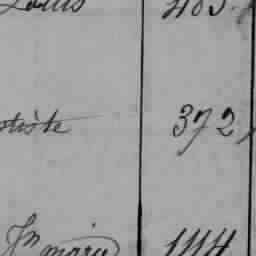 Louis 403
ptiste 372
Jn marie 1114